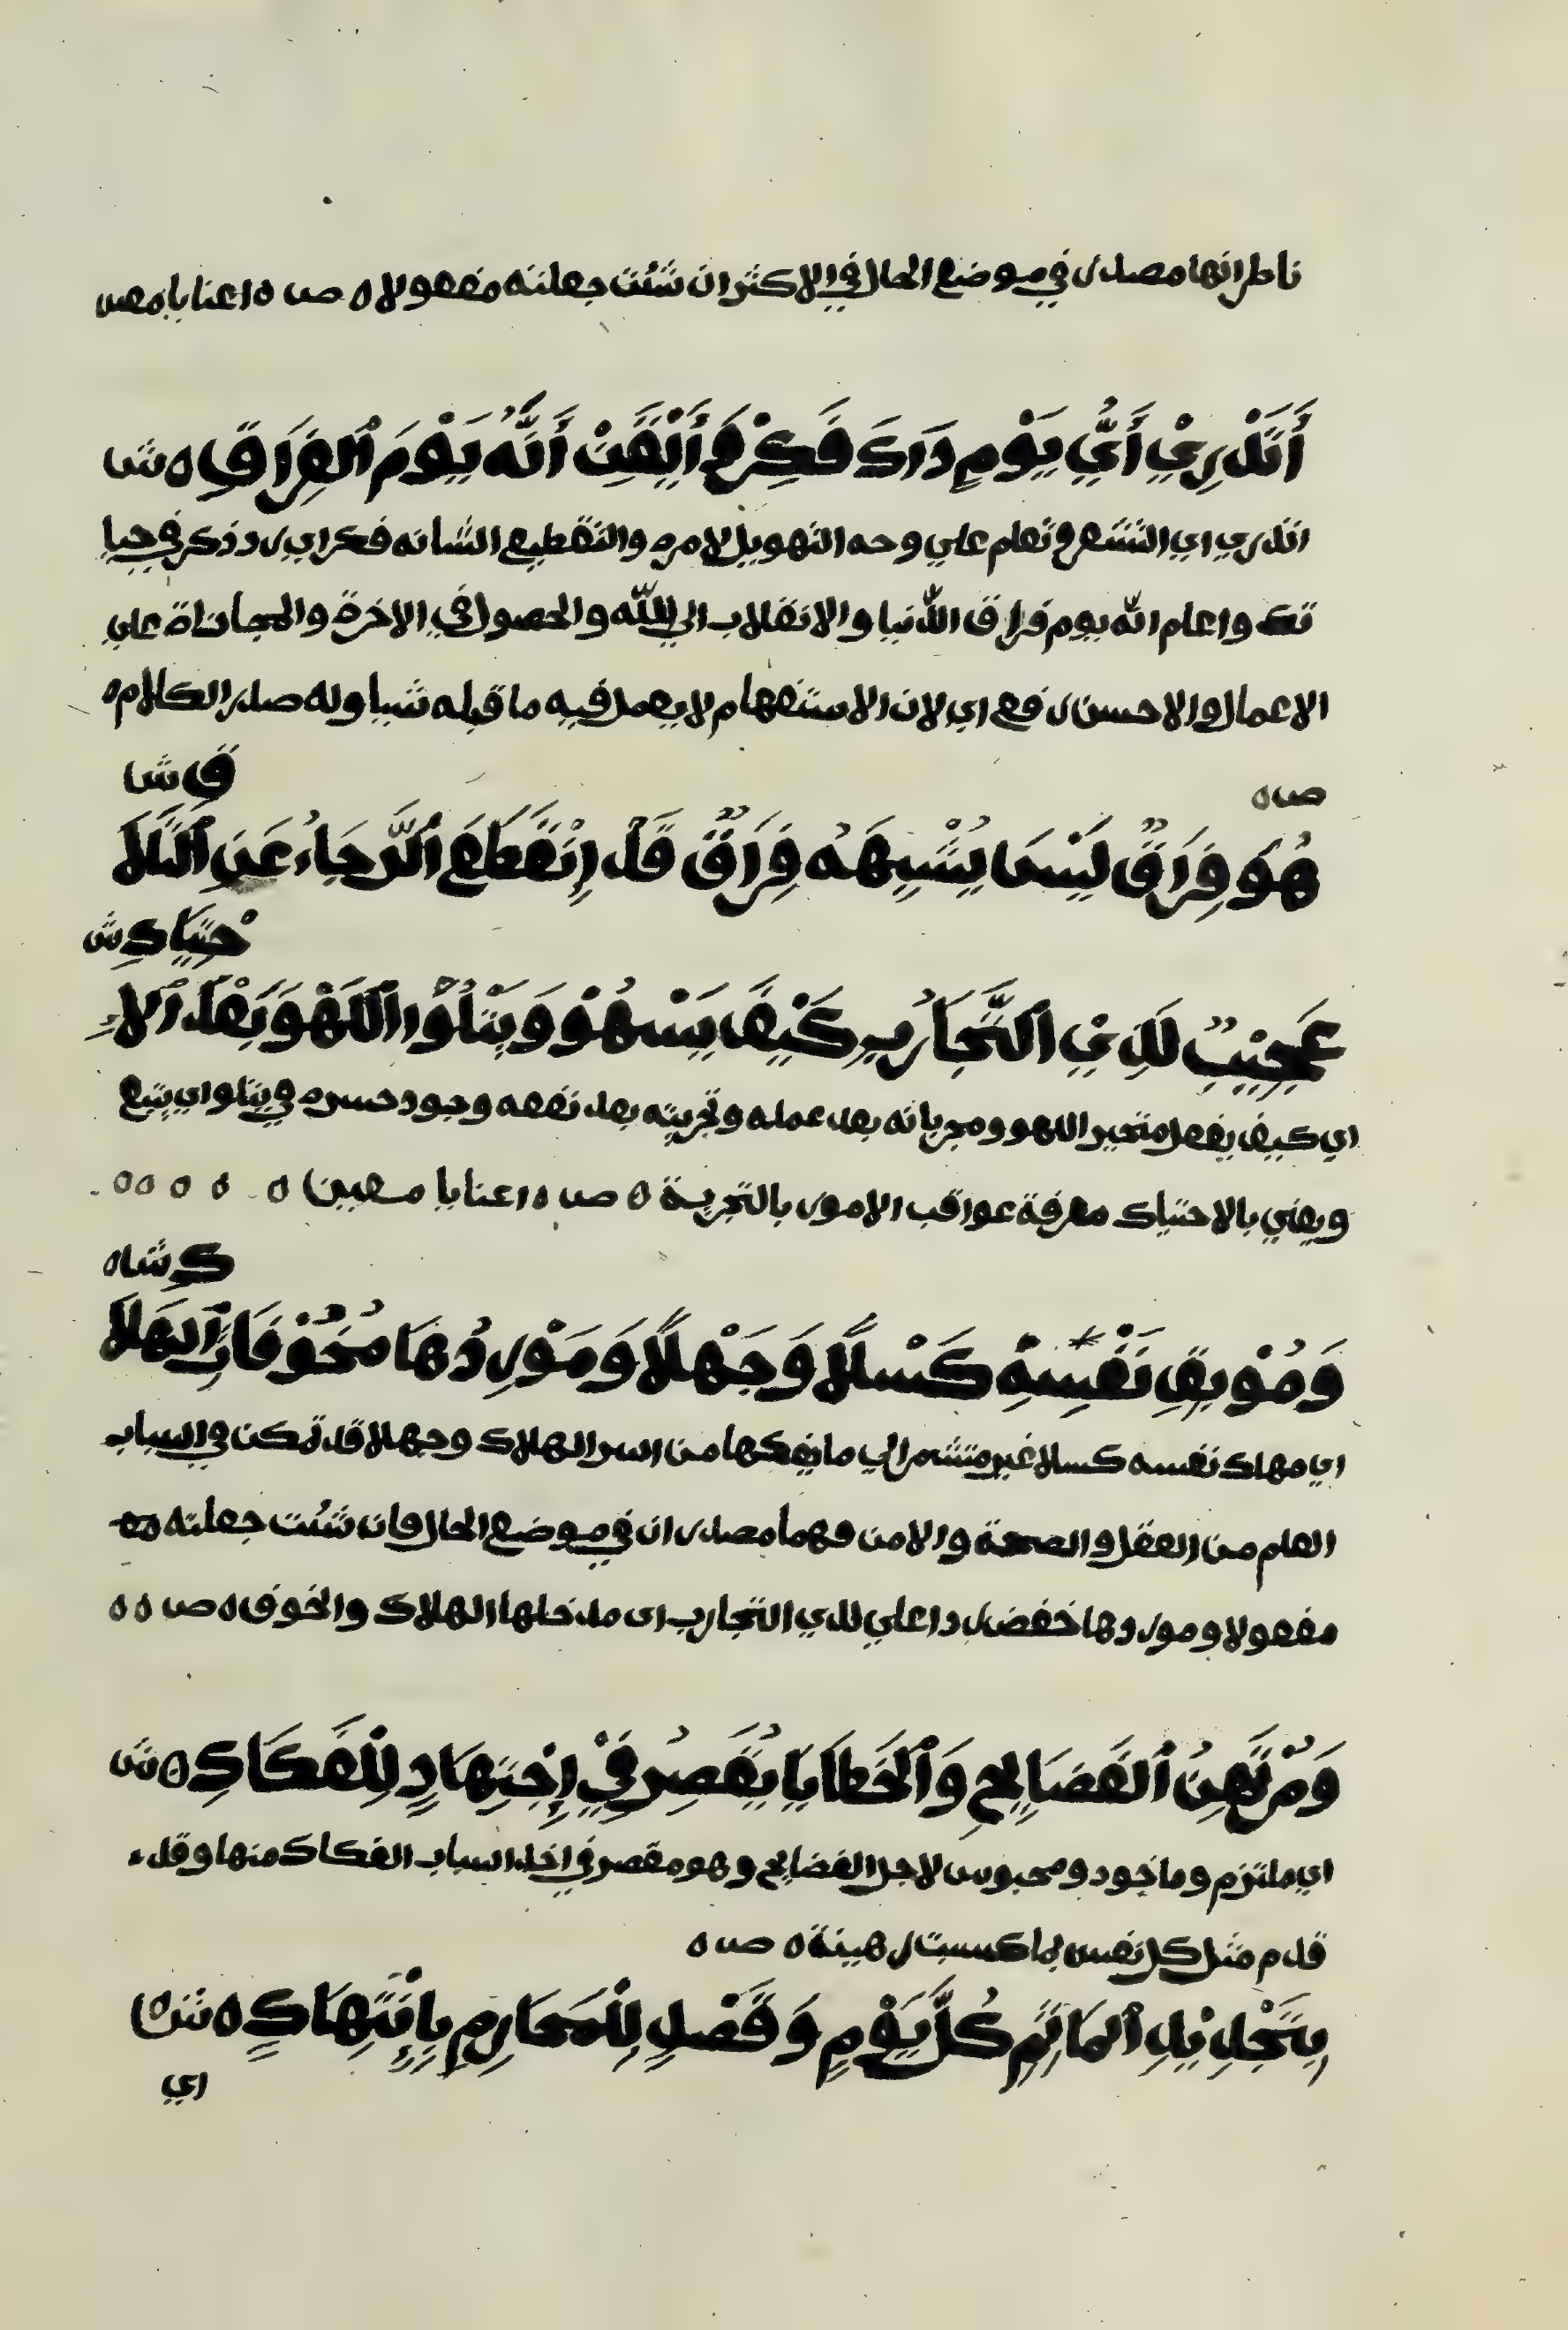 ناظرانها مصدر في موضع الحال في الاكثر ان شئت جعلته مفعولا ه ص ه اعنا يا معين
أَتَدْرِيْ أَيُّ يَوْمٍ ذَاكَ فَكِّرْ فَأَيْقَنْتَ أَنَّهُ يَوْمَ ٱلْفِرَاقِ ه ش
اتدري اي اتشعر و تعلم علي وجه التهويل لامره والتفظيع لشانه فكر اي رد ذكر في حيا
تك واعلم انه يوم فراق الدنيا والانقلاب الي الله والحصول في الاخرة والمجازاة علي
الاعمال والاحسن رفع اي لان الاستفهام لا يعمل فيه ما قبله شيا وله صدر الكلام ه
ص ه
هُوَ فِرَاقٌ لَيْسَ يُشْبِهَهُ فِرَاقٌ قَدْ اِنْقَطَعَ ٱلرَّجَاءُ عَنِ ٱلتَّلَا
قِ ش
عَجِيْبٌ لَلِذِيْ ٱلتَّجَارُبِ كَيْفَ يَسْهُوْ وَيَتْلُوْا ٱللَّهْوَ بَعْدَ ٱلْاِ
حْتِيَاكِ ش
اي كيف يفعل متحير اللهو ومجرباته بعد عمله وتجربته بعد نفعه وجود حسره في يتلو اي يتبع
ويعني بالاحتياك معرفة عواقب الامور بالتجربة ه ص ه اعنا يا معين ه ه ه ه ه
وَمُوْبِقِ نَفْسِهِ كَسْلًا وَجَهْلًا وَمَوْرِدُهَا مُخُوْفَاتِ ٱلْهَلَا
كِ ش ه
اي مهلك نفسه كسلا غير متشمر الي ما يفكها من اسر الهلاك وجهلا قد تمكن في اسباب
العلم من العقل والصحة والامن فهما مصدران في موضع الحال فان شئت جعلته
مفعولا وموردها خفض ردا علي للذي التجارب اى مدخلها الهلاك والخوف ه ص ه ه
وَمُرْتَهِنُ ٱلْفَضَايِحِ وَٱلْخَطَايَا يُقَصِرُ فِيْ اِجْتِهَادٍ لِلْفَكَاكِ ه ش
اي ملتزم وماخود ومحبوس لاجل الفضايح وهو مقصر في اخذ اسباب الفكاك منها وقد
قدم مثل كل نفس بما كسبت رهينة ه ص ه
بِتَجْدِيْدِ ٱلْمَاثَمِ كُلَّ يَوْمٍ وَقَصْدٍ لِلْمَحَارِمِ بِاِنْتِهَاكٍ ه ش
اي